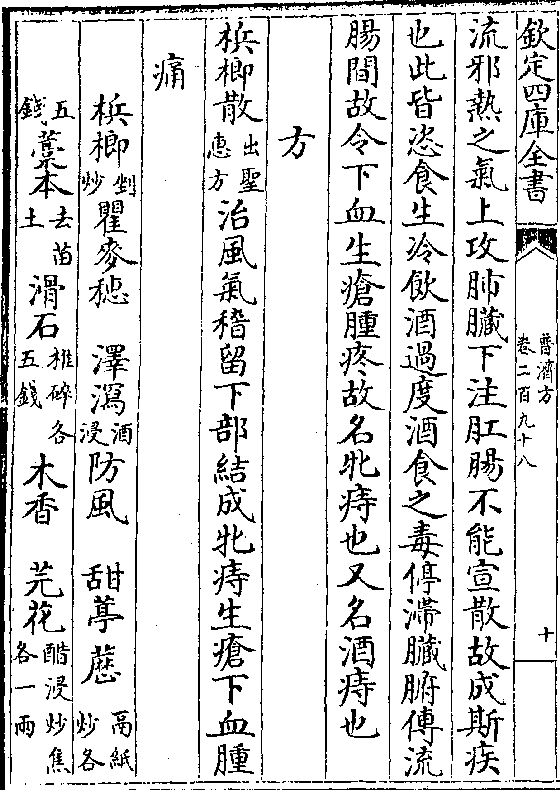 欽定四庫全書
普濟方
卷二百九十八
十
流邪熱之氣上攻肺臟下注肛腸不能宣散故成斯疾
也此皆恣食生冷飲酒過度酒食之毒停滯臟腑傳流
腸間故令下血生瘡腫疼故名牝痔也又名酒痔也
方
槟榔散出聖惠方治風氣稽留下部結成牝痔生瘡下血腫
痛
槟榔剉炒瞿麥穗 澤瀉酒浸防風 甜葶藶鬲紙炒各
五錢藁本去苗土 滑石椎碎各五錢 木香 芫花醋浸炒焦各一兩